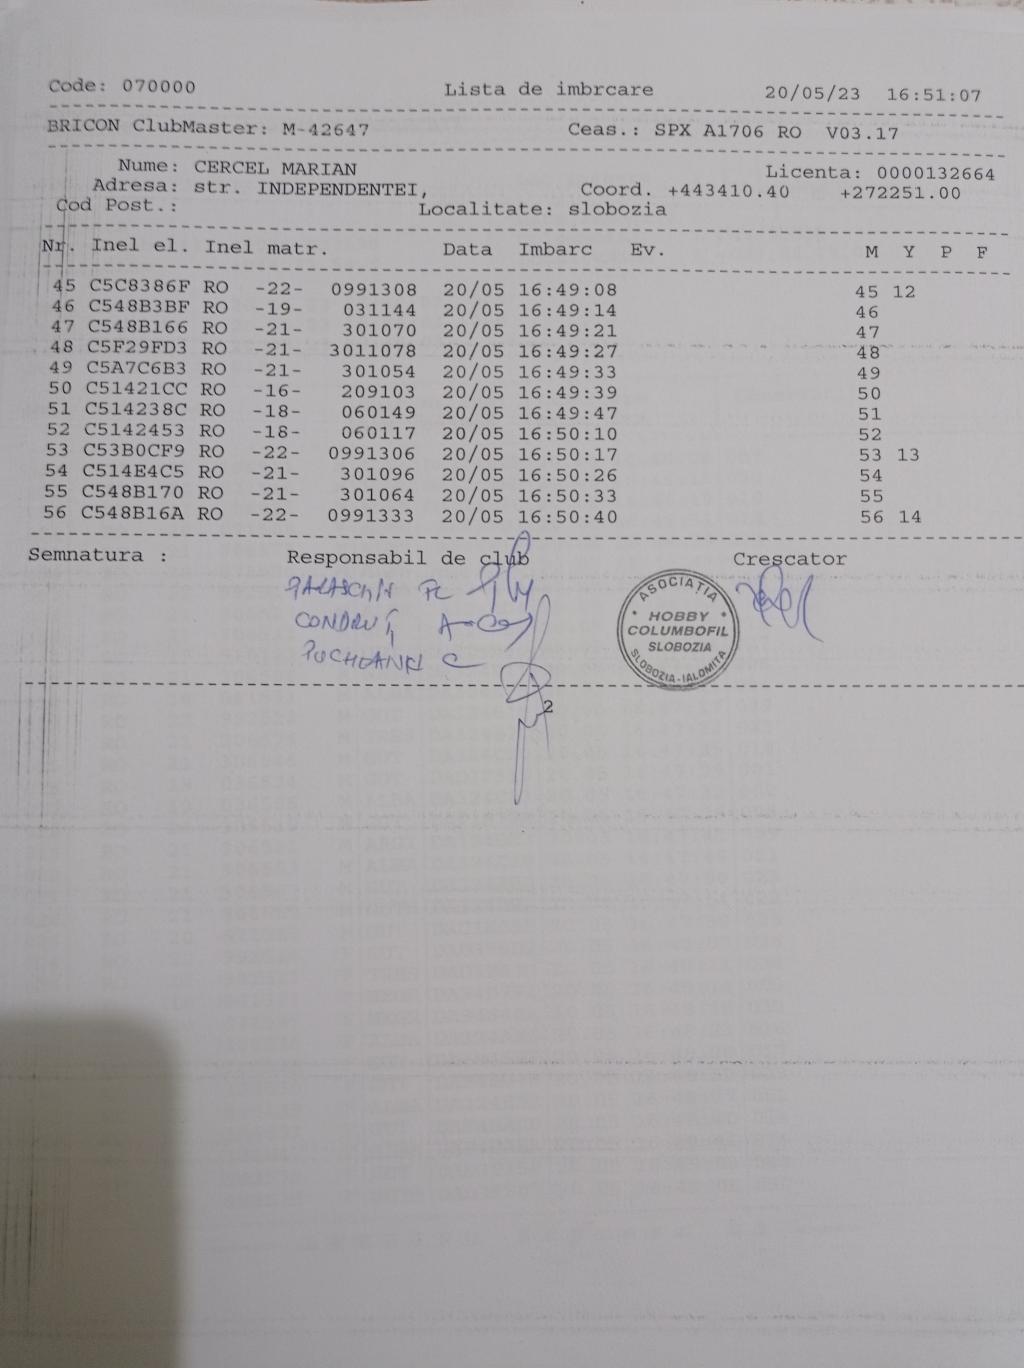 Code: 070000 Lista de imbrcare 20/05/23 16:51:07
BRICON ClubMaster: M-42647 Ceas.: SPX A1706 RO V03.17
Nume: CERCEL MARIAN Licenta: 0000132664
Adresa: str. INDEPENDENTEI, Coord. +443410.40 +272251.00
Cod Post.: Localitate: slobozia
Nr. Inel el. Inel matr. Data Imbarc Ev. M Y P F
45 C5C8386F RO -22- 0991308 20/05 16:49:08 45 12
46 C548B3BF RO -19- 031144 20/05 16:49:14 46
47 C548B166 RO -21- 301070 20/05 16:49:21 47
48 C5F29FD3 RO -21- 3011078 20/05 16:49:27 48
49 C5A7C6B3 RO -21- 301054 20/05 16:49:33 49
50 C51421CC RO -16- 209103 20/05 16:49:39 50
51 C514238C RO -18- 060149 20/05 16:49:47 51
52 C5142453 RO -18- 060117 20/05 16:50:10 52
53 C53B0CF9 RO -22- 0991306 20/05 16:50:17 53 13
54 C514E4C5 RO -21- 301096 20/05 16:50:26 54
55 C548B170 RO -21- 301064 20/05 16:50:33 55
56 C548B16A RO -22- 0991333 20/05 16:50:40 56 14
Semnatura : Responsabil de club Crescator
ASOCIAȚIA
HOBBY
COLUMBOFIL
SLOBOZIA
SLOBOZIA-IALOMITA
2